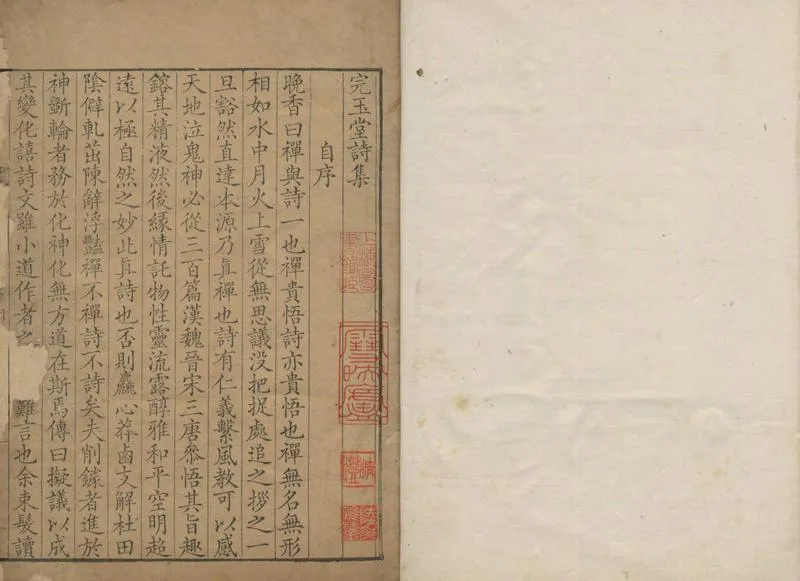 完玉堂詩集
自序
晚香曰禪與詩一也禪貴悟詩亦貴悟也禪無名無形
相如水中月火上雪從無思議没把捉處追之拶之一
旦豁然直達本源乃眞禪也詩有仁義繫風教可以感
天地泣鬼神必從三百篇漢魏晉宋三唐叅悟其旨趣
鎔其精液然後緣情託物性靈流露醇雅和平空明超
遠以極自然之妙此眞詩也否則麤心莽鹵文解杜田
陰僻軋茁陳辭浮豔禪不禪詩不詩矣夫削鐻者進於
神斵輪者務於化神化無方道在斯焉傳曰擬議以成
其變化譆詩文雖小道作者之 難言也余束髮讀